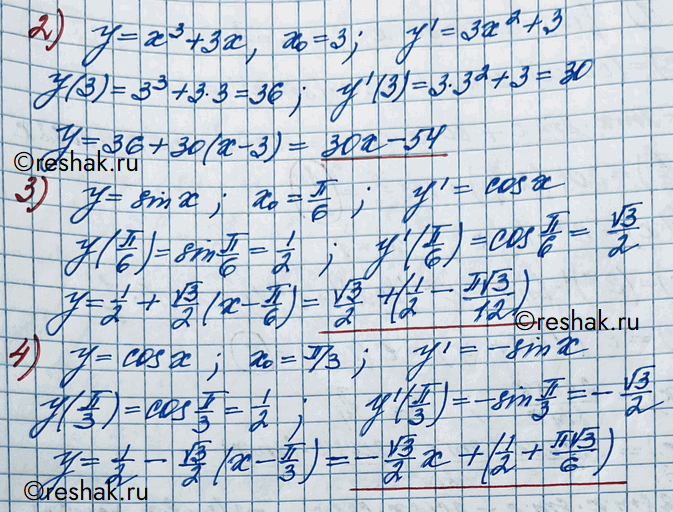 2) y=x³+3x, x₀=3; y'=3x²+3
y(3)=3³+3·3=36; y'(3)=3·3²+3=30
y=36+30(x-3)=30x-54
©reshak.ru
3) y=sinx; x₀=π/6; y'=cosx
y(π/6)=sin π/6=1/2; y'(π/6)=cos π/6=√3/2
y=1/2+√3/2(x-π/6)=√3/2+(1/2-π√3/12)
©reshak.ru
4) y=cosx; x₀=π/3; y'=-sinx
y(π/3)=cos π/3=1/2; y'(π/3)=-sin π/3=-√3/2
y=1/2-√3/2(x-π/3)=-√3/2x+(1/2+π√3/6)
©reshak.ru